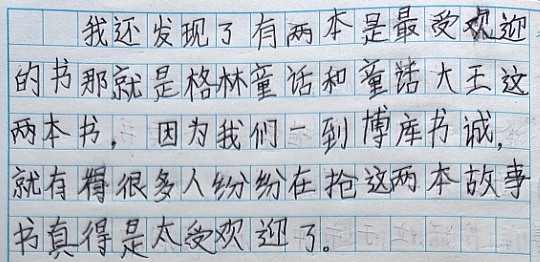 我还发现了有两本是最受欢迎
的书那就是格林童话和童话大王这
两本书，因为我们一到博库书诚，
就有得很多人纷纷在抢这两本故事
书真得是太受欢迎了。